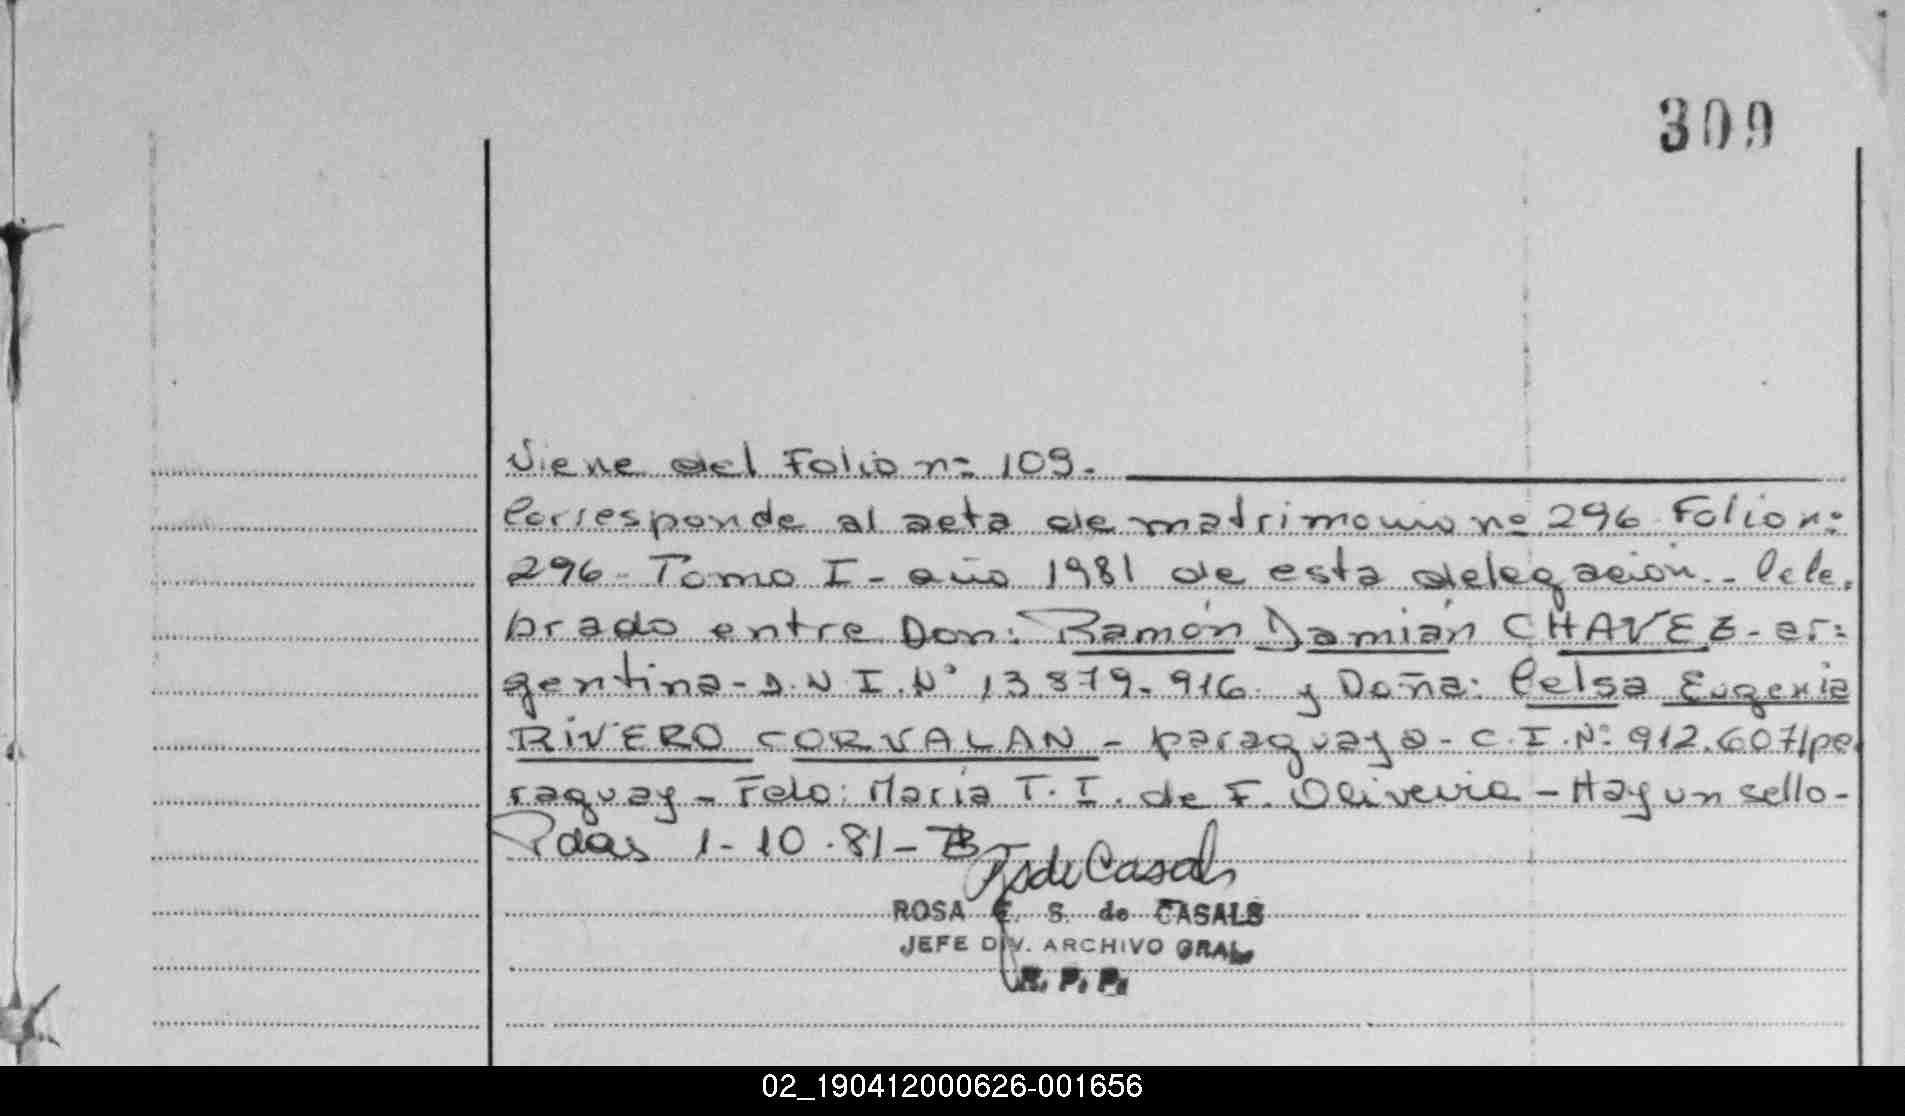 309
Viene del Folio nº 109.
Corresponde al acta de matrimonio nº 296 Folio nº
296- Tomo I- año 1981 de esta delegación.- Cele.
brado entre Don: Ramón Damián CHAVEZ- ar:
gentina- D.N.I.Nº 13.879.916 y Doña: Celsa Eugenia
RIVERO CORVALAN - paraguaya- C.I.Nº 912.607/pa
raguay- Fdo: María T. I. de F. Oliveira - Hay un sello-
Pdas 1-10.81-
de Casals
ROSA E. S. de CASALS
JEFE DIV. ARCHIVO GRAL.
R. P. P.
02_190412000626-001656